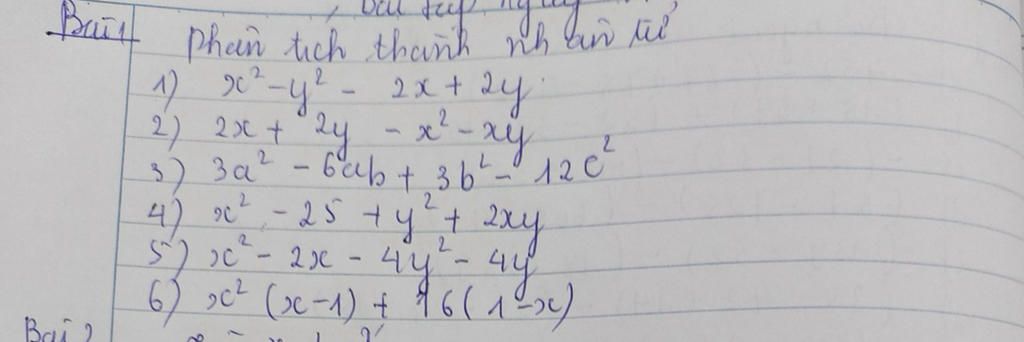 Bài 1 Phân tích thành nhân tử
1) x² - y² - 2x + 2y
2) 2x + 2y - x² - xy
3) 3a² - 6ab + 3b² - 12c²
4) x² - 25 + y² + 2xy
5) x² - 2x - 4y² - 4y
6) x² (x-1) + 16(1-x)
Bài 2